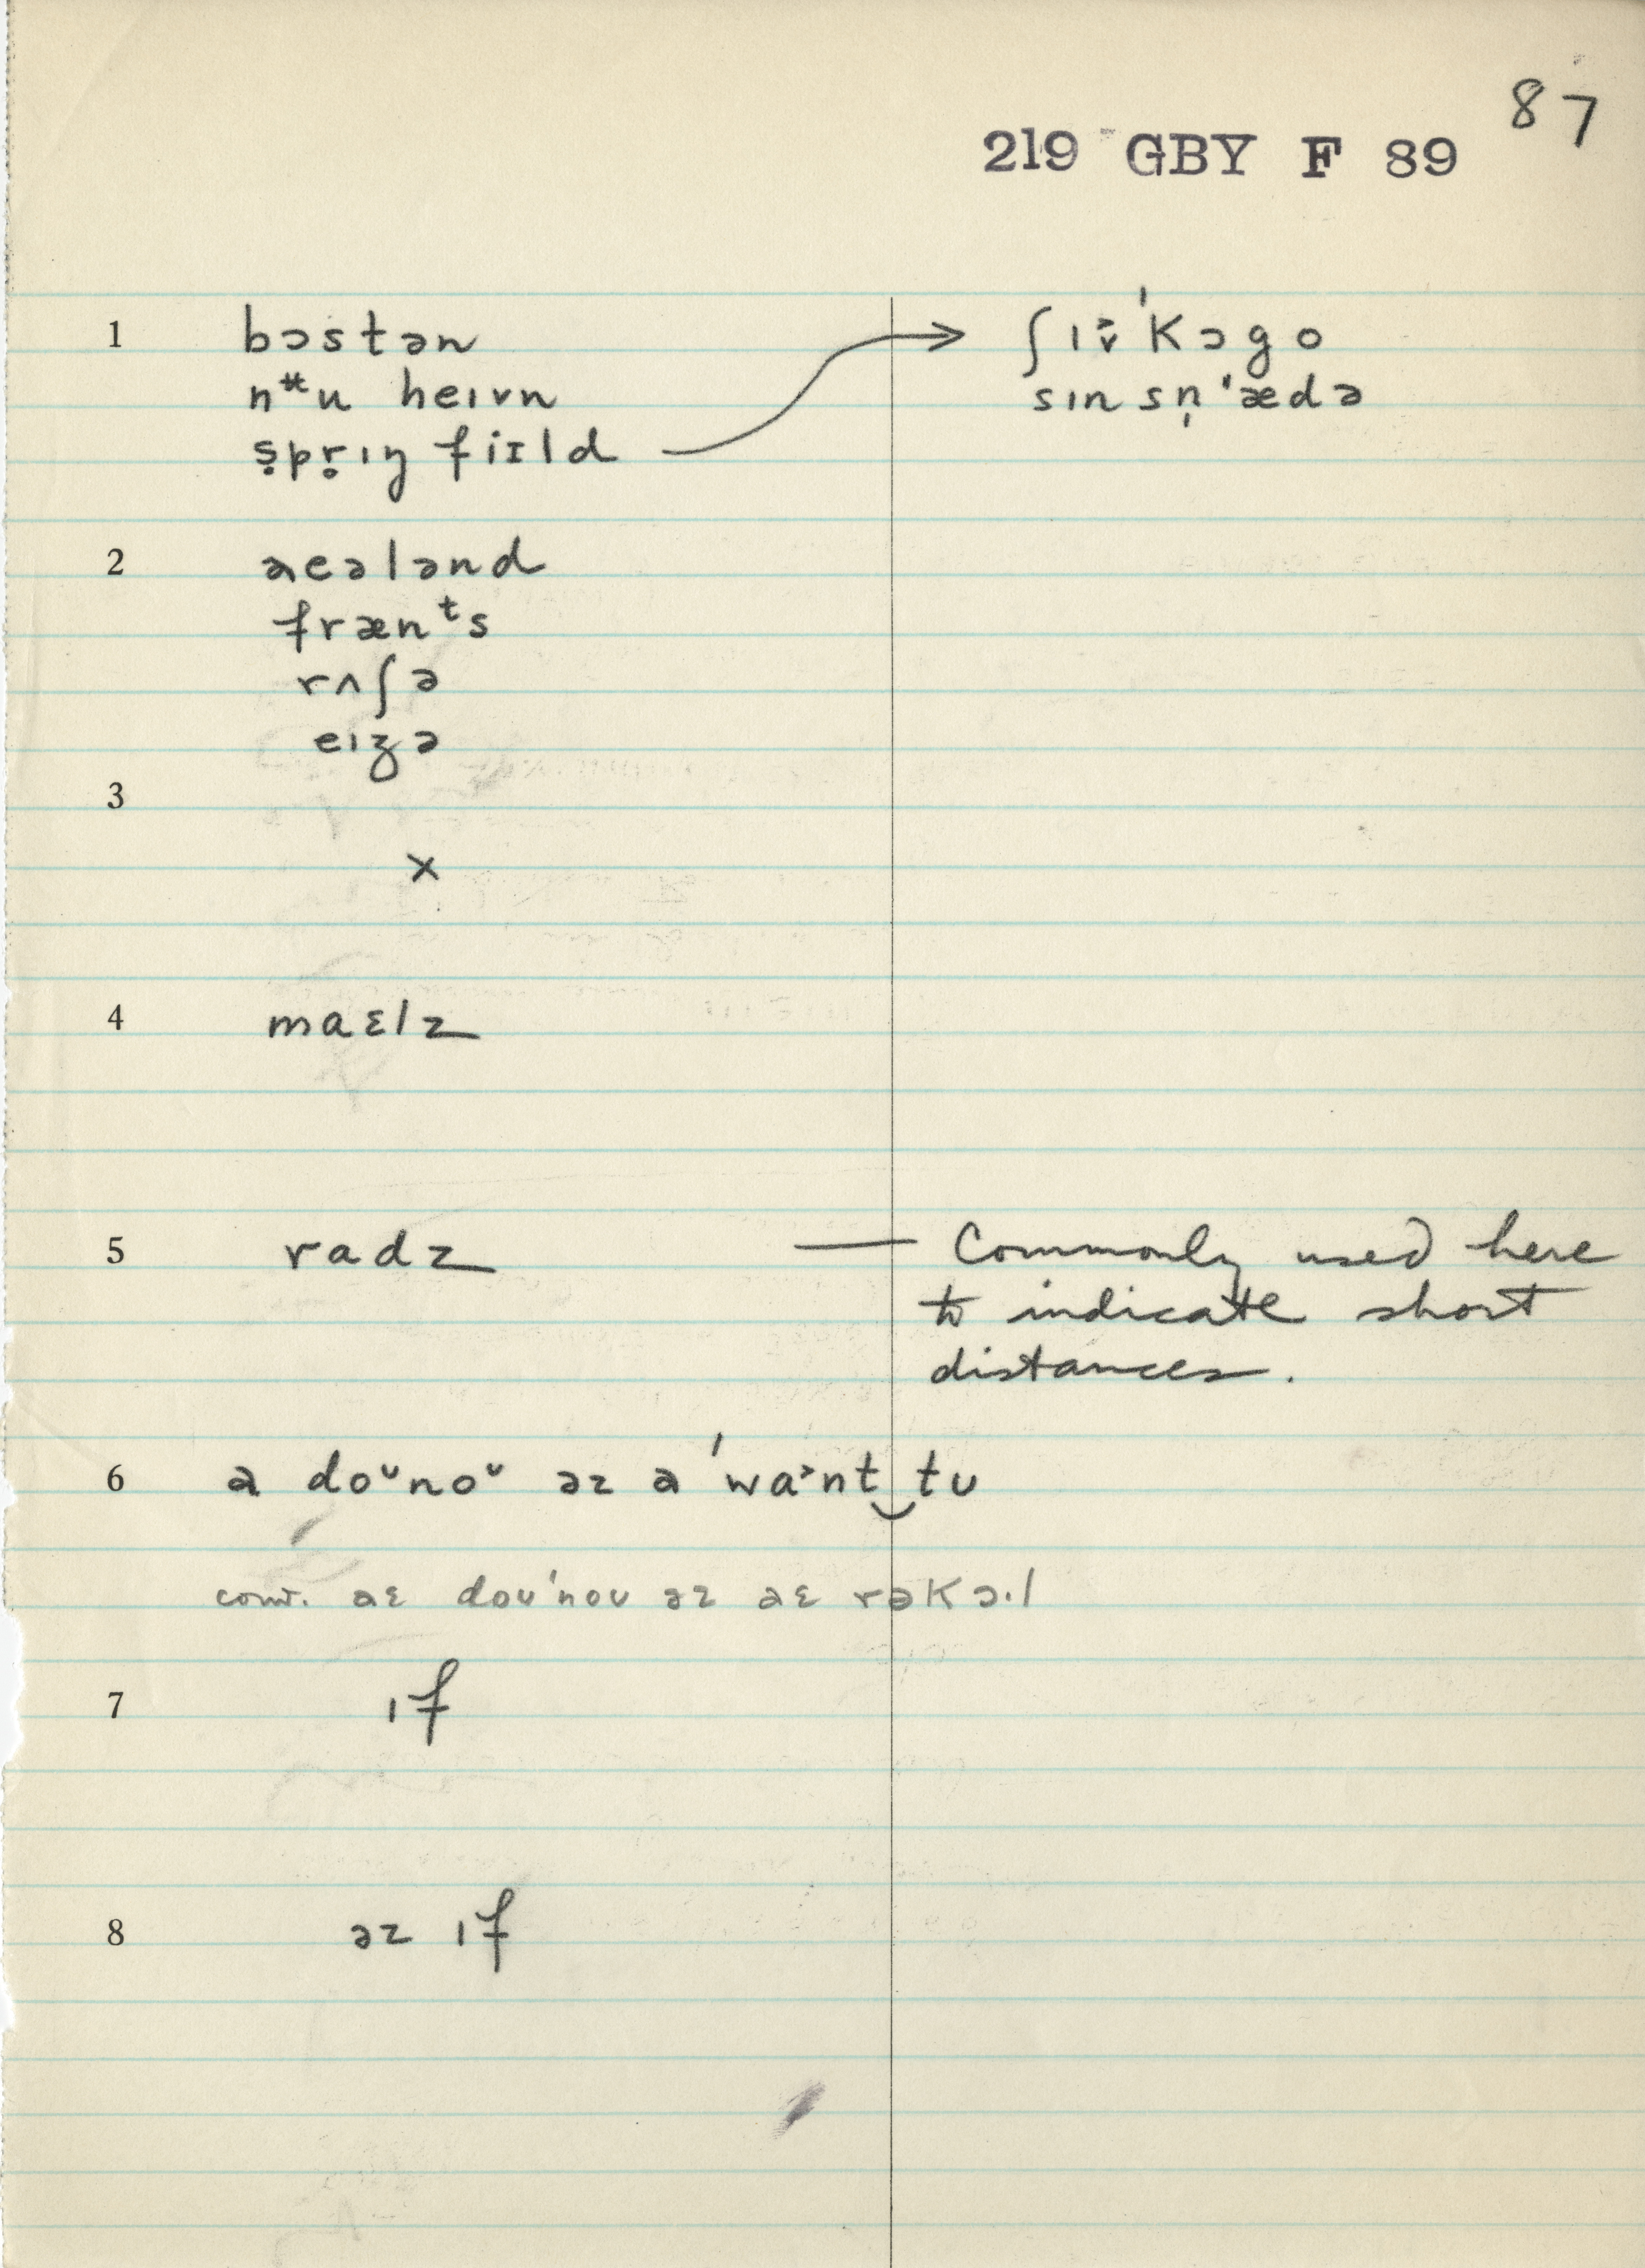 87
219 GBY F 89
1 bɔstən
nᵾu heɪvn
ṣpṛɪŋ fiɪld → ʃɪ'kɔgo
sɪn sṇ'ædə
2 aɛələnd
frænᵗs
rʌʃə
eɪʒə
3
x
4 maɛlz
5 radz — Commonly used here
to indicate short
distances.
6 a doᵘnoᵘ əz a 'wa˃nt‿tʊ
conv. aɛ doʊ'noʊ əz aɛ rəkɔ.l
7 ɪf
8 əz ɪf